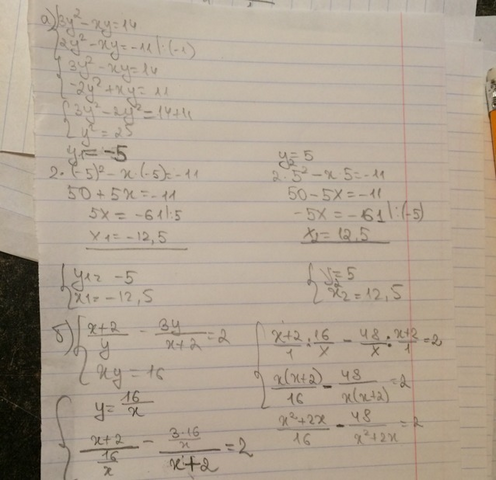 а) 3y² - xy = 14
2y² - xy = -11 |·(-1)
3y² - xy = 14
-2y² + xy = 11
3y² - 2y² = 14 + 11
y² = 25
y₁ = -5
2·(-5)² - x·(-5) = -11
50 + 5x = -11
5x = -61 |:5
x₁ = -12,5
y₂ = 5
2·5² - x·5 = -11
50 - 5x = -11
-5x = -61 |:(-5)
x₂ = 12,5
y₁ = -5
x₁ = -12,5
y₂ = 5
x₂ = 12,5
б) (x+2)/y - 3y/(x+2) = 2
xy = 16
y = 16/x
(x+2)/(16/x) - (3·16/x)/(x+2) = 2
(x+2)/1 : 16/x - 48/x : (x+2)/1 = 2
x(x+2)/16 - 48/(x(x+2)) = 2
(x²+2x)/16 - 48/(x²+2x) = 2